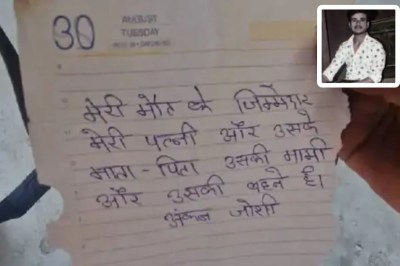 30
AUGUST
TUESDAY
मेरी मौत के जिम्मेदार
मेरी पत्नी और उसके
माता-पिता उसकी मामी
और उसकी बहने है।
जोशी